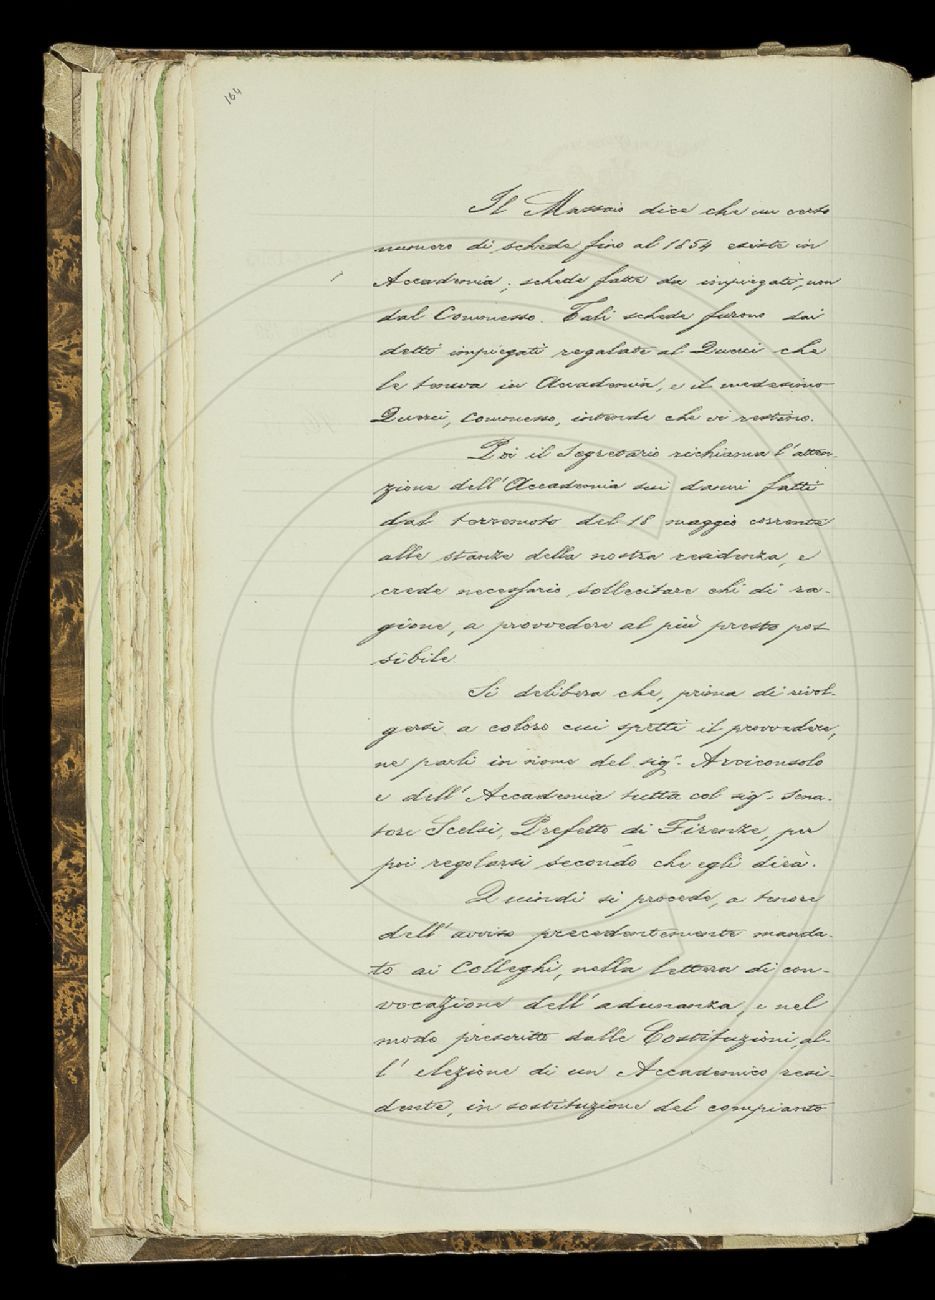 164
Il Massaio dice che un certo
numero di schede fino al 1854 esiste in
Accademia; schede fatte da impiegati, non
dal Commesso. Tali schede furono dai
detti impiegati regalate al Querci che
le teneva in Accademia, e il medesimo
Querci, Commesso, intende che vi restino.
Poi il Segretario richiama l'atten-
zione dell'Accademia sui danni fatti
dal terremoto del 18 maggio corrente
alle stanze della nostra residenza, e
crede necessario sollecitare chi di ra-
gione, a provvedere al più presto pos-
sibile.
Si delibera che, prima di rivol-
gersi a coloro cui spetti il provvedere,
ne parli in nome del sig.r Arciconsolo
e dell'Accademia tutta col sig.r Sena-
tore Scelsi, Prefetto di Firenze, per
poi regolarsi secondo che egli dirà.
Quindi si procede, a tenore
dell'avviso precedentemente manda-
to ai Colleghi, nella lettera di con-
vocazione dell'adunanza, e nel
modo prescritto dalle Costituzioni, al-
l'elezione di un Accademico resi-
dente, in sostituzione del compianto